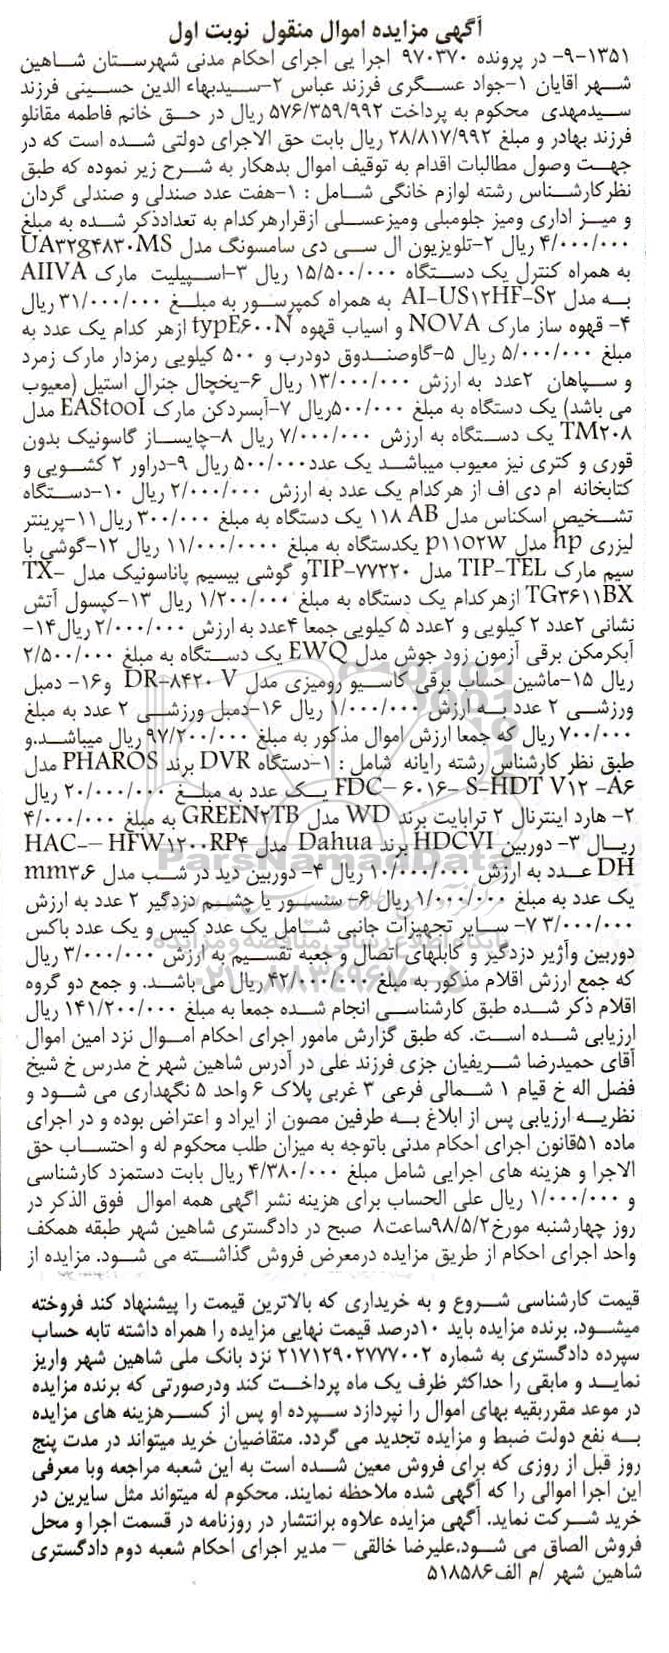 آگهی مزایده اموال منقول نوبت اول
۹-۱۳۵۱- در پرونده ۹۷۰۳۷۰ اجرا یی اجرای احکام مدنی شهرستان شاهین
شهر اقایان ۱-جواد عسگری فرزند عباس ۲-سیدبهاء الدین حسینی فرزند
سیدمهدی محکوم به پرداخت ۵۷۶/۳۵۹/۹۹۲ ریال در حق خانم فاطمه مقانلو
فرزند بهادر و مبلغ ۲۸/۸۱۷/۹۹۲ ریال بابت حق الاجرای دولتی شده است که در
جهت وصول مطالبات اقدام به توقیف اموال بدهکار به شرح زیر نموده که طبق
نظرکارشناس رشته لوازم خانگی شامل : ۱-هفت عدد صندلی و صندلی گردان
و میز اداری ومیز جلومبلی ومیزعسلی ازقرارهرکدام به تعدادذکر شده به مبلغ
۴/۰۰۰/۰۰۰ ریال ۲-تلویزیون ال سی دی سامسونگ مدل UA۳۲g۴۸۳۰MS
به همراه کنترل یک دستگاه ۱۵/۵۰۰/۰۰۰ ریال ۳-اسپیلیت مارک AIIVA
به مدل AI-US۱۲HF-S۲ به همراه کمپرسور به مبلغ ۳۱/۰۰۰/۰۰۰ ریال
۴- قهوه ساز مارک NOVA و اسیاب قهوه typE۶۰۰N ازهر کدام یک عدد به
مبلغ ۵/۰۰۰/۰۰۰ ریال ۵-گاوصندوق دودرب و ۵۰۰ کیلویی رمزدار مارک زمرد
و سپاهان ۲عدد به ارزش ۱۳/۰۰۰/۰۰۰ ریال ۶-یخچال جنرال استیل (معیوب
می باشد) یک دستگاه به مبلغ ۵۰۰/۰۰۰ریال ۷-آبسردکن مارک EAStool مدل
TM۲۰۸ یک دستگاه به ارزش ۷/۰۰۰/۰۰۰ ریال ۸-چایساز گاسونیک بدون
قوری و کتری نیز معیوب میباشد یک عدد۵۰۰/۰۰۰ ریال ۹-دراور ۲ کشویی و
کتابخانه ام دی اف از هرکدام یک عدد به ارزش ۲/۰۰۰/۰۰۰ ریال ۱۰-دستگاه
تشخیص اسکناس مدل ۱۱۸ AB یک دستگاه به مبلغ ۳۰۰/۰۰۰ ریال۱۱-پرینتر
لیزری hp مدل p۱۱۰۲w یکدستگاه به مبلغ ۱۱/۰۰۰/۰۰۰۰ ریال ۱۲-گوشی با
سیم مارک TIP-TEL مدل TIP-۷۷۲۲۰و گوشی بیسیم پاناسونیک مدل TX-
TG۳۶۱۱BX ازهرکدام یک دستگاه به مبلغ ۱/۲۰۰/۰۰۰ ریال ۱۳-کپسول آتش
نشانی ۲عدد ۲ کیلویی و ۲عدد ۵ کیلویی جمعا ۴عدد به ارزش ۲/۰۰۰/۰۰۰ ریال۱۴-
آبکرمکن برقی آزمون زود جوش مدل EWQ یک دستگاه به مبلغ ۲/۵۰۰/۰۰۰
ریال ۱۵-ماشین حساب برقی کاسیو رومیزی مدل DR-۸۴۲۰ V و۱۶- دمبل
ورزشی ۲ عدد به ارزش ۱/۰۰۰/۰۰۰ ریال ۱۶-دمبل ورزشی ۲ عدد به مبلغ
۷۰۰/۰۰۰ ریال که جمعا ارزش اموال مذکور به مبلغ ۹۷/۲۰۰/۰۰۰ ریال میباشد.و
طبق نظر کارشناس رشته رایانه شامل : ۱-دستگاه DVR برند PHAROS مدل
FDC- ۶۰۱۶- S-HDT V۱۲ -A۶ یک عدد به مبلغ ۲۰/۰۰۰/۰۰۰ ریال
۲- هارد اینترنال ۲ ترابایت برند WD مدل GREEN۲TB به مبلغ ۴/۰۰۰/۰۰۰
ریال ۳- دوربین HDCVI برند Dahua مدل HAC-- HFW۱۲۰۰RP۴
DH عدد به ارزش ۱۰/۰۰۰/۰۰۰ ریال ۴- دوربین دید در شب مدل mm۳.۶
یک عدد به مبلغ ۱/۰۰۰/۰۰۰ ریال ۶- سنسور یا چشم دزدگیر ۲ عدد به ارزش
۳/۰۰۰/۰۰۰ ۷- سایر تجهیزات جانبی شامل یک عدد کیس و یک عدد باکس
دوربین وآژیر دزدگیر و کابلهای اتصال و جعبه تقسیم به ارزش ۳/۰۰۰/۰۰۰ ریال
که جمع ارزش اقلام مذکور به مبلغ ۴۲/۰۰۰/۰۰۰ ریال می باشد. و جمع دو گروه
اقلام ذکر شده طبق کارشناسی انجام شده جمعا به مبلغ ۱۴۱/۲۰۰/۰۰۰ ریال
ارزیابی شده است. که طبق گزارش مامور اجرای احکام اموال نزد امین اموال
آقای حمیدرضا شریفیان جزی فرزند علی در آدرس شاهین شهر خ مدرس خ شیخ
فضل اله خ قیام ۱ شمالی فرعی ۳ غربی پلاک ۶ واحد ۵ نگهداری می شود و
نظریه ارزیابی پس از ابلاغ به طرفین مصون از ایراد و اعتراض بوده و در اجرای
ماده ۵۱قانون اجرای احکام مدنی باتوجه به میزان طلب محکوم له و احتساب حق
الاجرا و هزینه های اجرایی شامل مبلغ ۴/۳۸۰/۰۰۰ ریال بابت دستمزد کارشناسی
و ۱/۰۰۰/۰۰۰ ریال علی الحساب برای هزینه نشر اگهی همه اموال فوق الذکر در
روز چهارشنبه مورخ۹۸/۵/۲ساعت۸ صبح در دادگستری شاهین شهر طبقه همکف
واحد اجرای احکام از طریق مزایده درمعرض فروش گذاشته می شود. مزایده از
قیمت کارشناسی شروع و به خریداری که بالاترین قیمت را پیشنهاد کند فروخته
میشود. برنده مزایده باید ۱۰درصد قیمت نهایی مزایده را همراه داشته تابه حساب
سپرده دادگستری به شماره ۲۱۷۱۲۹۰۲۷۷۷۰۰۲ نزد بانک ملی شاهین شهر واریز
نماید و مابقی را حداکثر ظرف یک ماه پرداخت کند ودرصورتی که برنده مزایده
در موعد مقرربقیه بهای اموال را نپردازد سپرده او پس از کسرهزینه های مزایده
به نفع دولت ضبط و مزایده تجدید می گردد. متقاضیان خرید میتواند در مدت پنج
روز قبل از روزی که برای فروش معین شده است به این شعبه مراجعه وبا معرفی
این اجرا اموالی را که آگهی شده ملاحظه نمایند. محکوم له میتواند مثل سایرین در
خرید شرکت نماید. آگهی مزایده علاوه برانتشار در روزنامه در قسمت اجرا و محل
فروش الصاق می شود.علیرضا خالقی – مدیر اجرای احکام شعبه دوم دادگستری
شاهین شهر /م الف۵۱۸۵۸۶